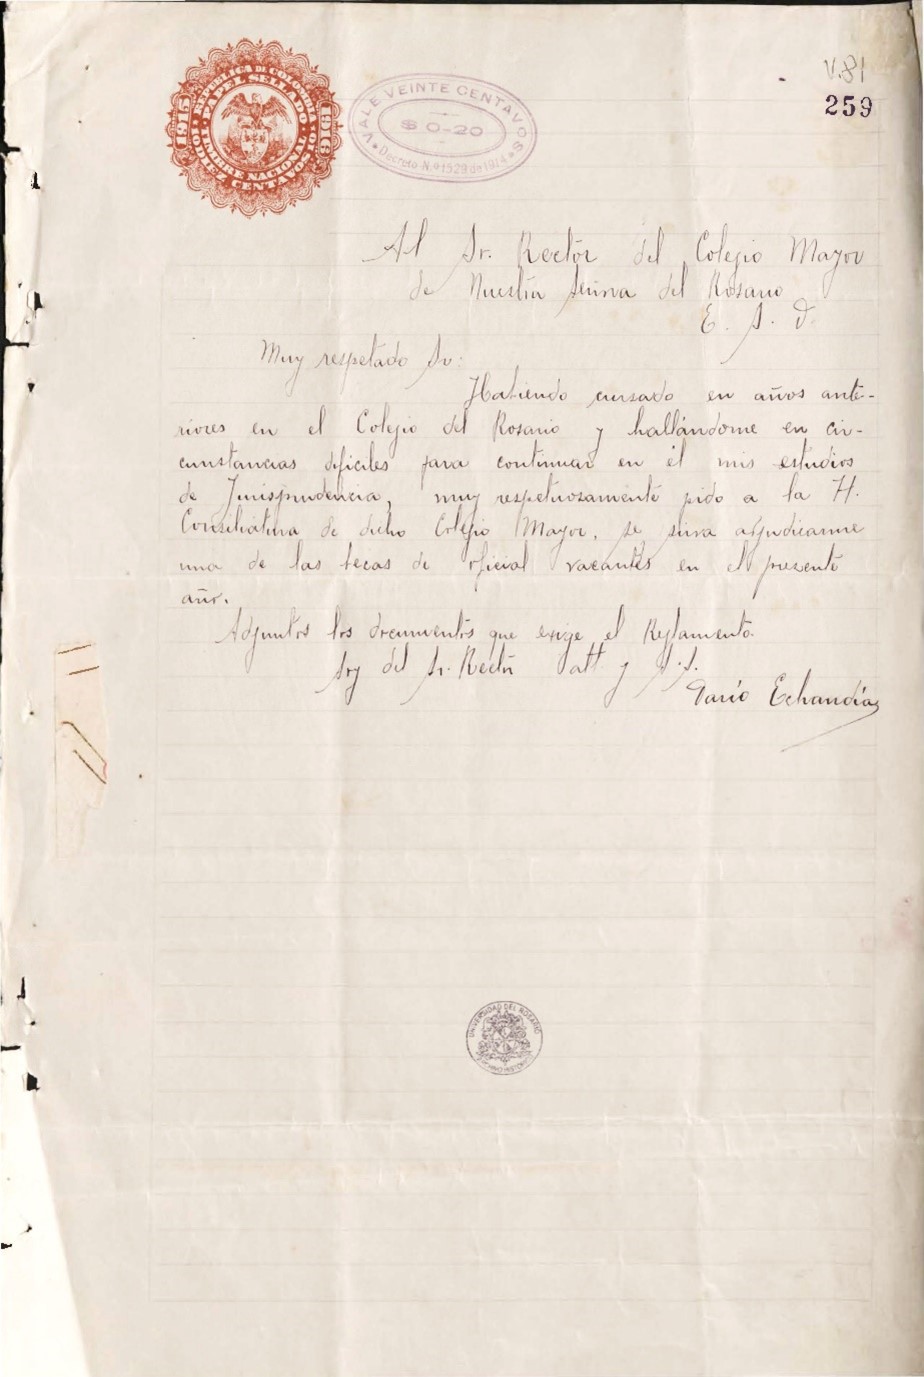 V.81
259
REPUBLICA DE COLOMBIA
PAPEL SELLADO
1915 1916
TIMBRE NACIONAL
DIEZ CENTAVOS
VALE VEINTE CENTAVOS
$ 0-20
Decreto N.º 1529 de 1914
Al Sr. Rector del Colegio Mayor
de Nuestra Señora del Rosario
E. S. D.
Muy respetado Sr:
Habiendo cursado en años ante-
riores en el Colegio del Rosario y hallándome en cir-
cunstancias dificiles para continuar en él mis estudios
de Jurisprudencia, muy respetuosamente pido a la H.
Consiliatura de dicho Colegio Mayor, se sirva adjudicarme
una de las becas de oficial vacantes en el presente
año.
Adjuntos los documentos que exige el Reglamento.
Soy del Sr. Rector att. y S.S.
Darío Echandía
UNIVERSIDAD DEL ROSARIO
ARCHIVO HISTORICO